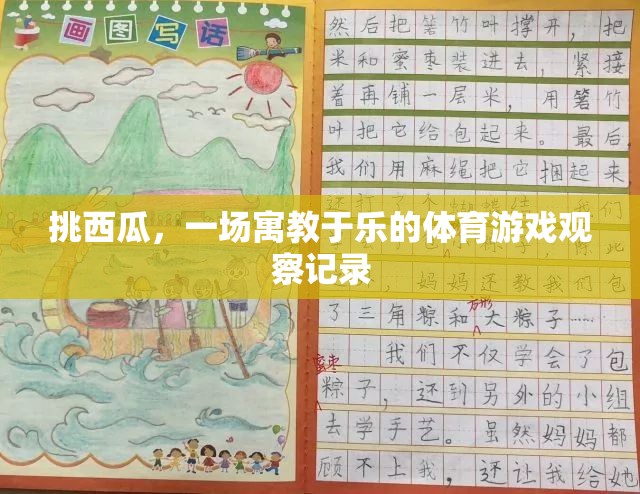 画图写话
然后把箬竹叶撑开，把
米和蜜枣装进去，紧接
着再铺一层米，用箬竹
叶把它给包起来。最后，
我们用麻绳把它捆起来
挑西瓜，一场寓教于乐的体育游戏观
察记录
妈妈还教我们包
方形
了三角粽和大粽子……
我们不仅学会了包
蜜枣
粽子，还到另外的小组
去学手艺。虽然妈妈都
顾不上我，还让我给她